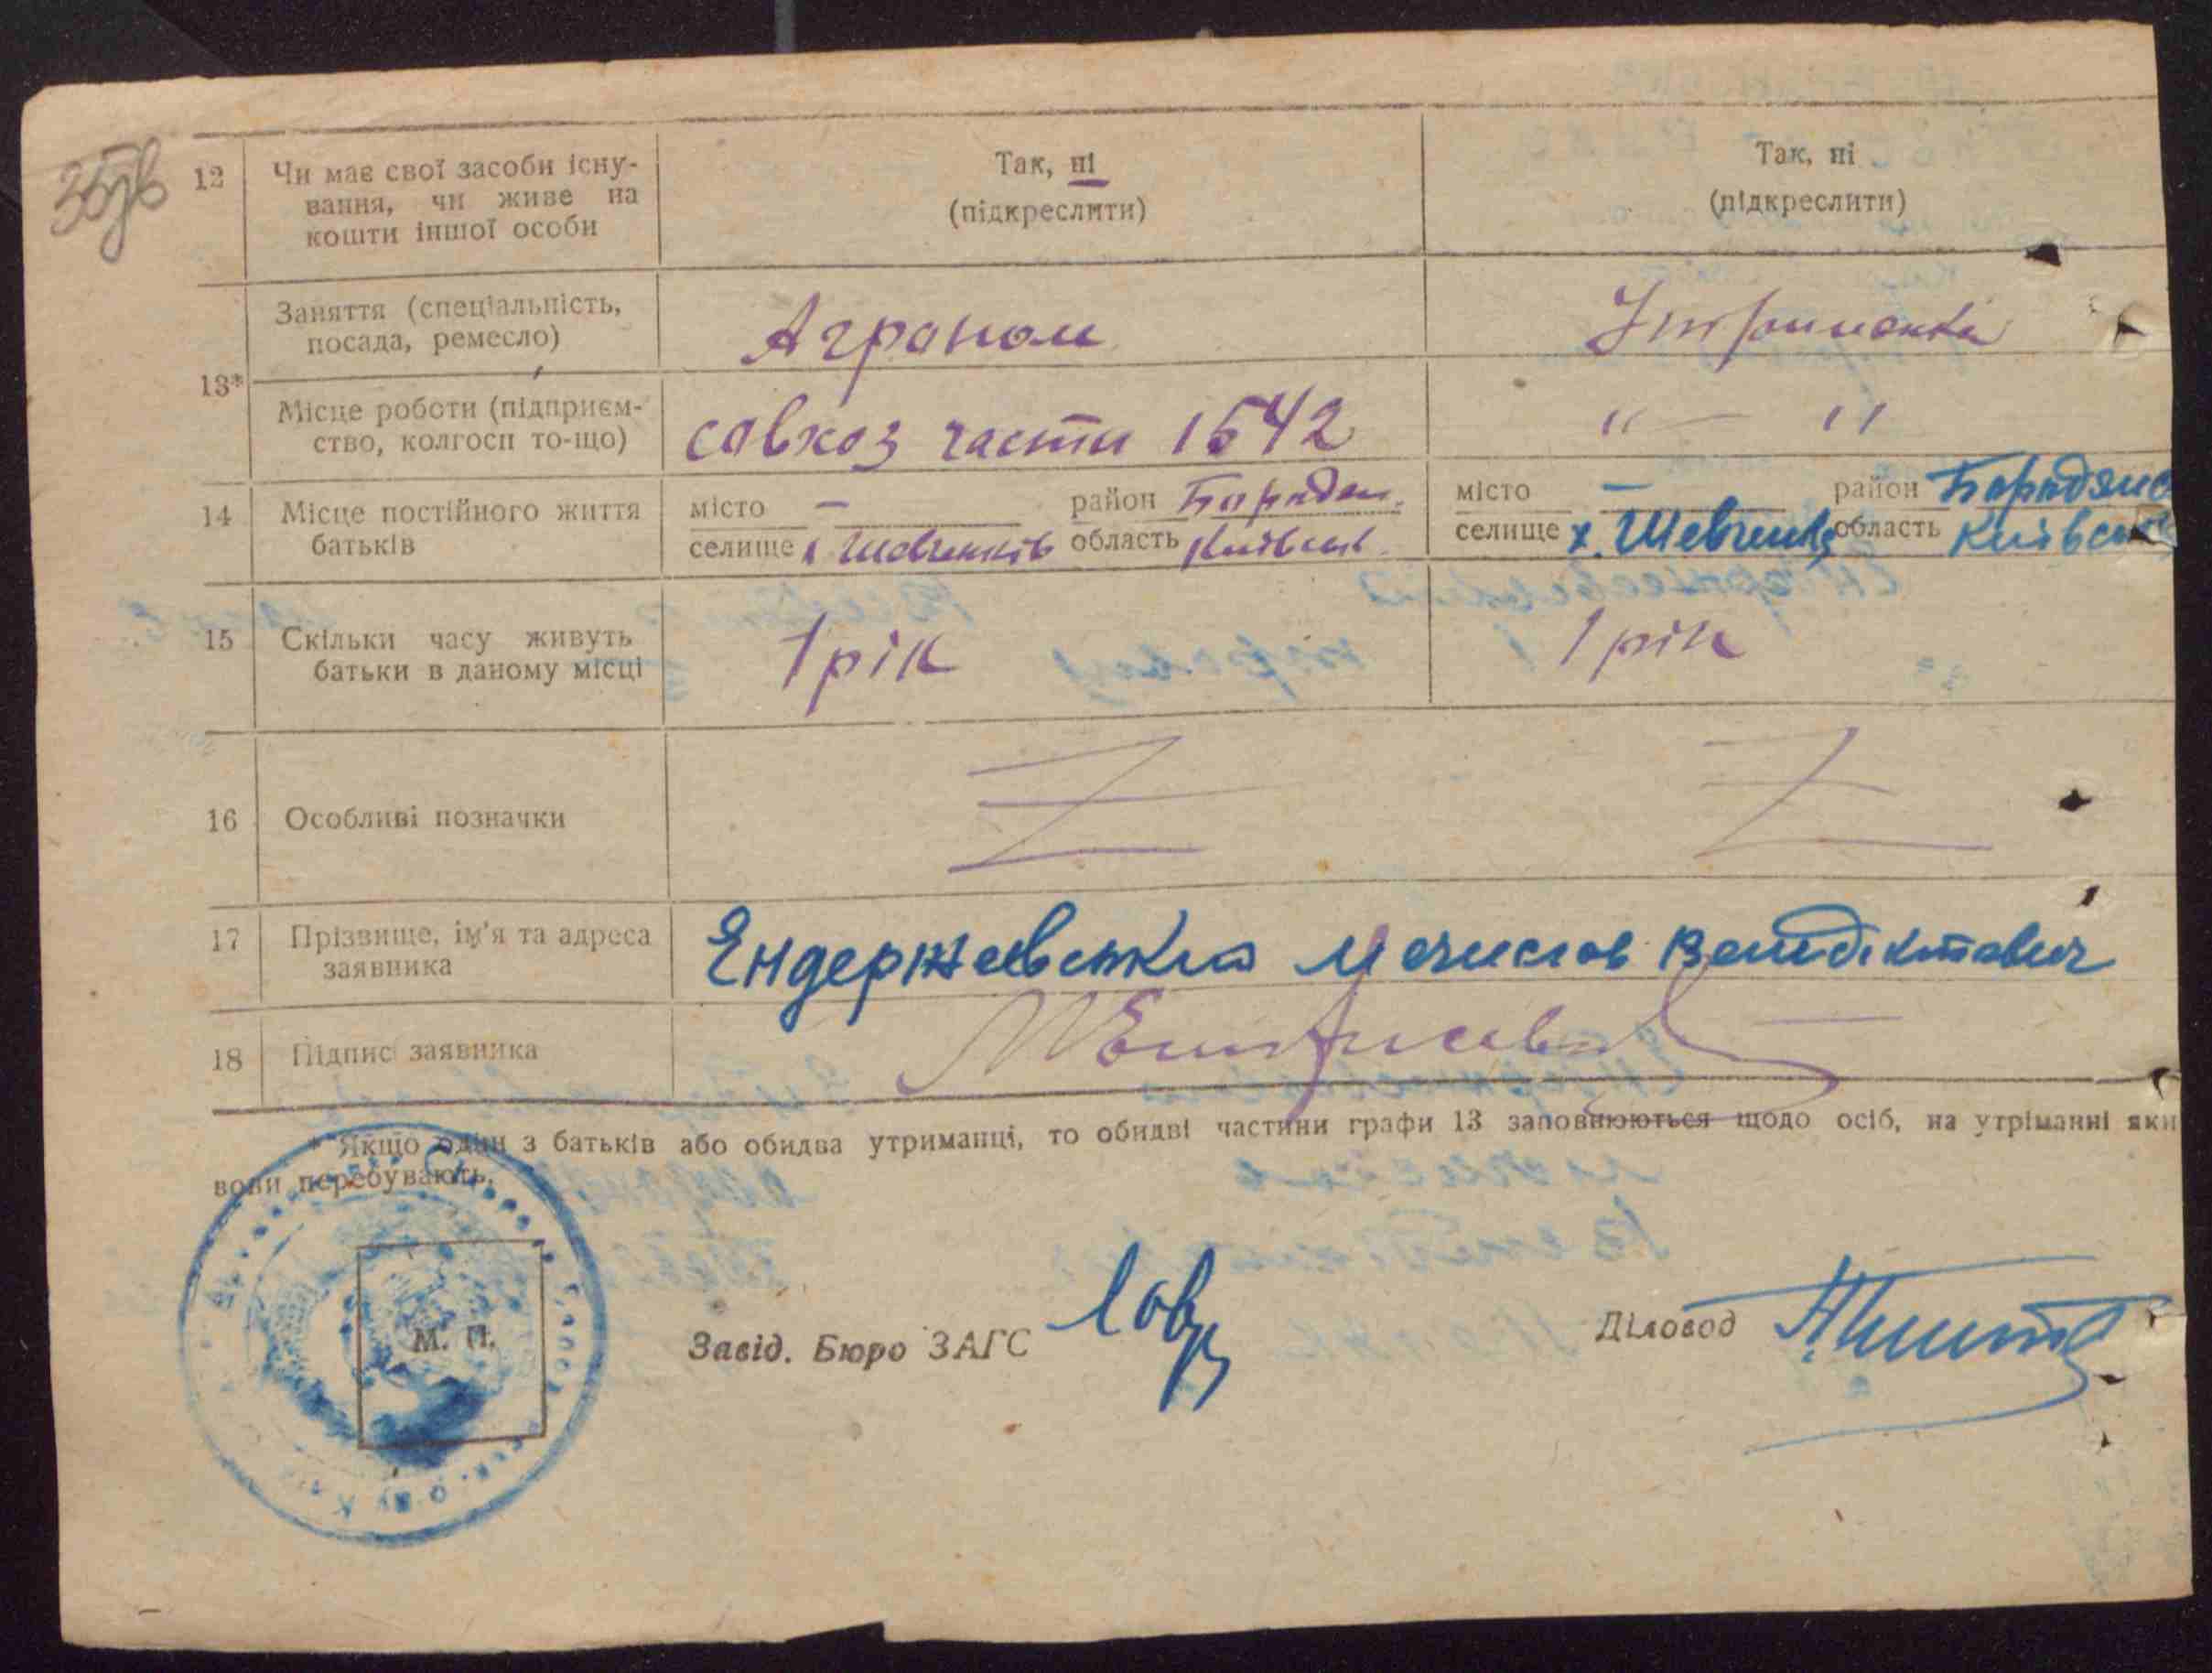 357в
12 Чи має свої засоби існу- Так, ні Так, ні
вання, чи живе на (підкреслити) (підкреслити)
кошти іншої особи
Заняття (спеціальність, Агроном
посада, ремесло)
13*
Місце роботи (підприєм- совхоз части 1542 " — "
ство, колгосп то-що)
14 Місце постійного життя місто — район Бородян. місто — район Бородянс
батьків селище х Шевченків область Київськ. селище х. Шевченків область Київськ
15 Скільки часу живуть 1 рік 1 рік
батьки в даному місці
16 Особливі позначки
17 Прізвище, ім'я та адреса Ендержевський Мечислав Венедіктович
заявника
18 Підпис заявника
* Якщо один з батьків або обидва утриманці, то обидві частини графи 13 заповнюються щодо осіб, на утріманні яки
вони перебувають.
М. П.
Завід. Бюро ЗАГС Діловод